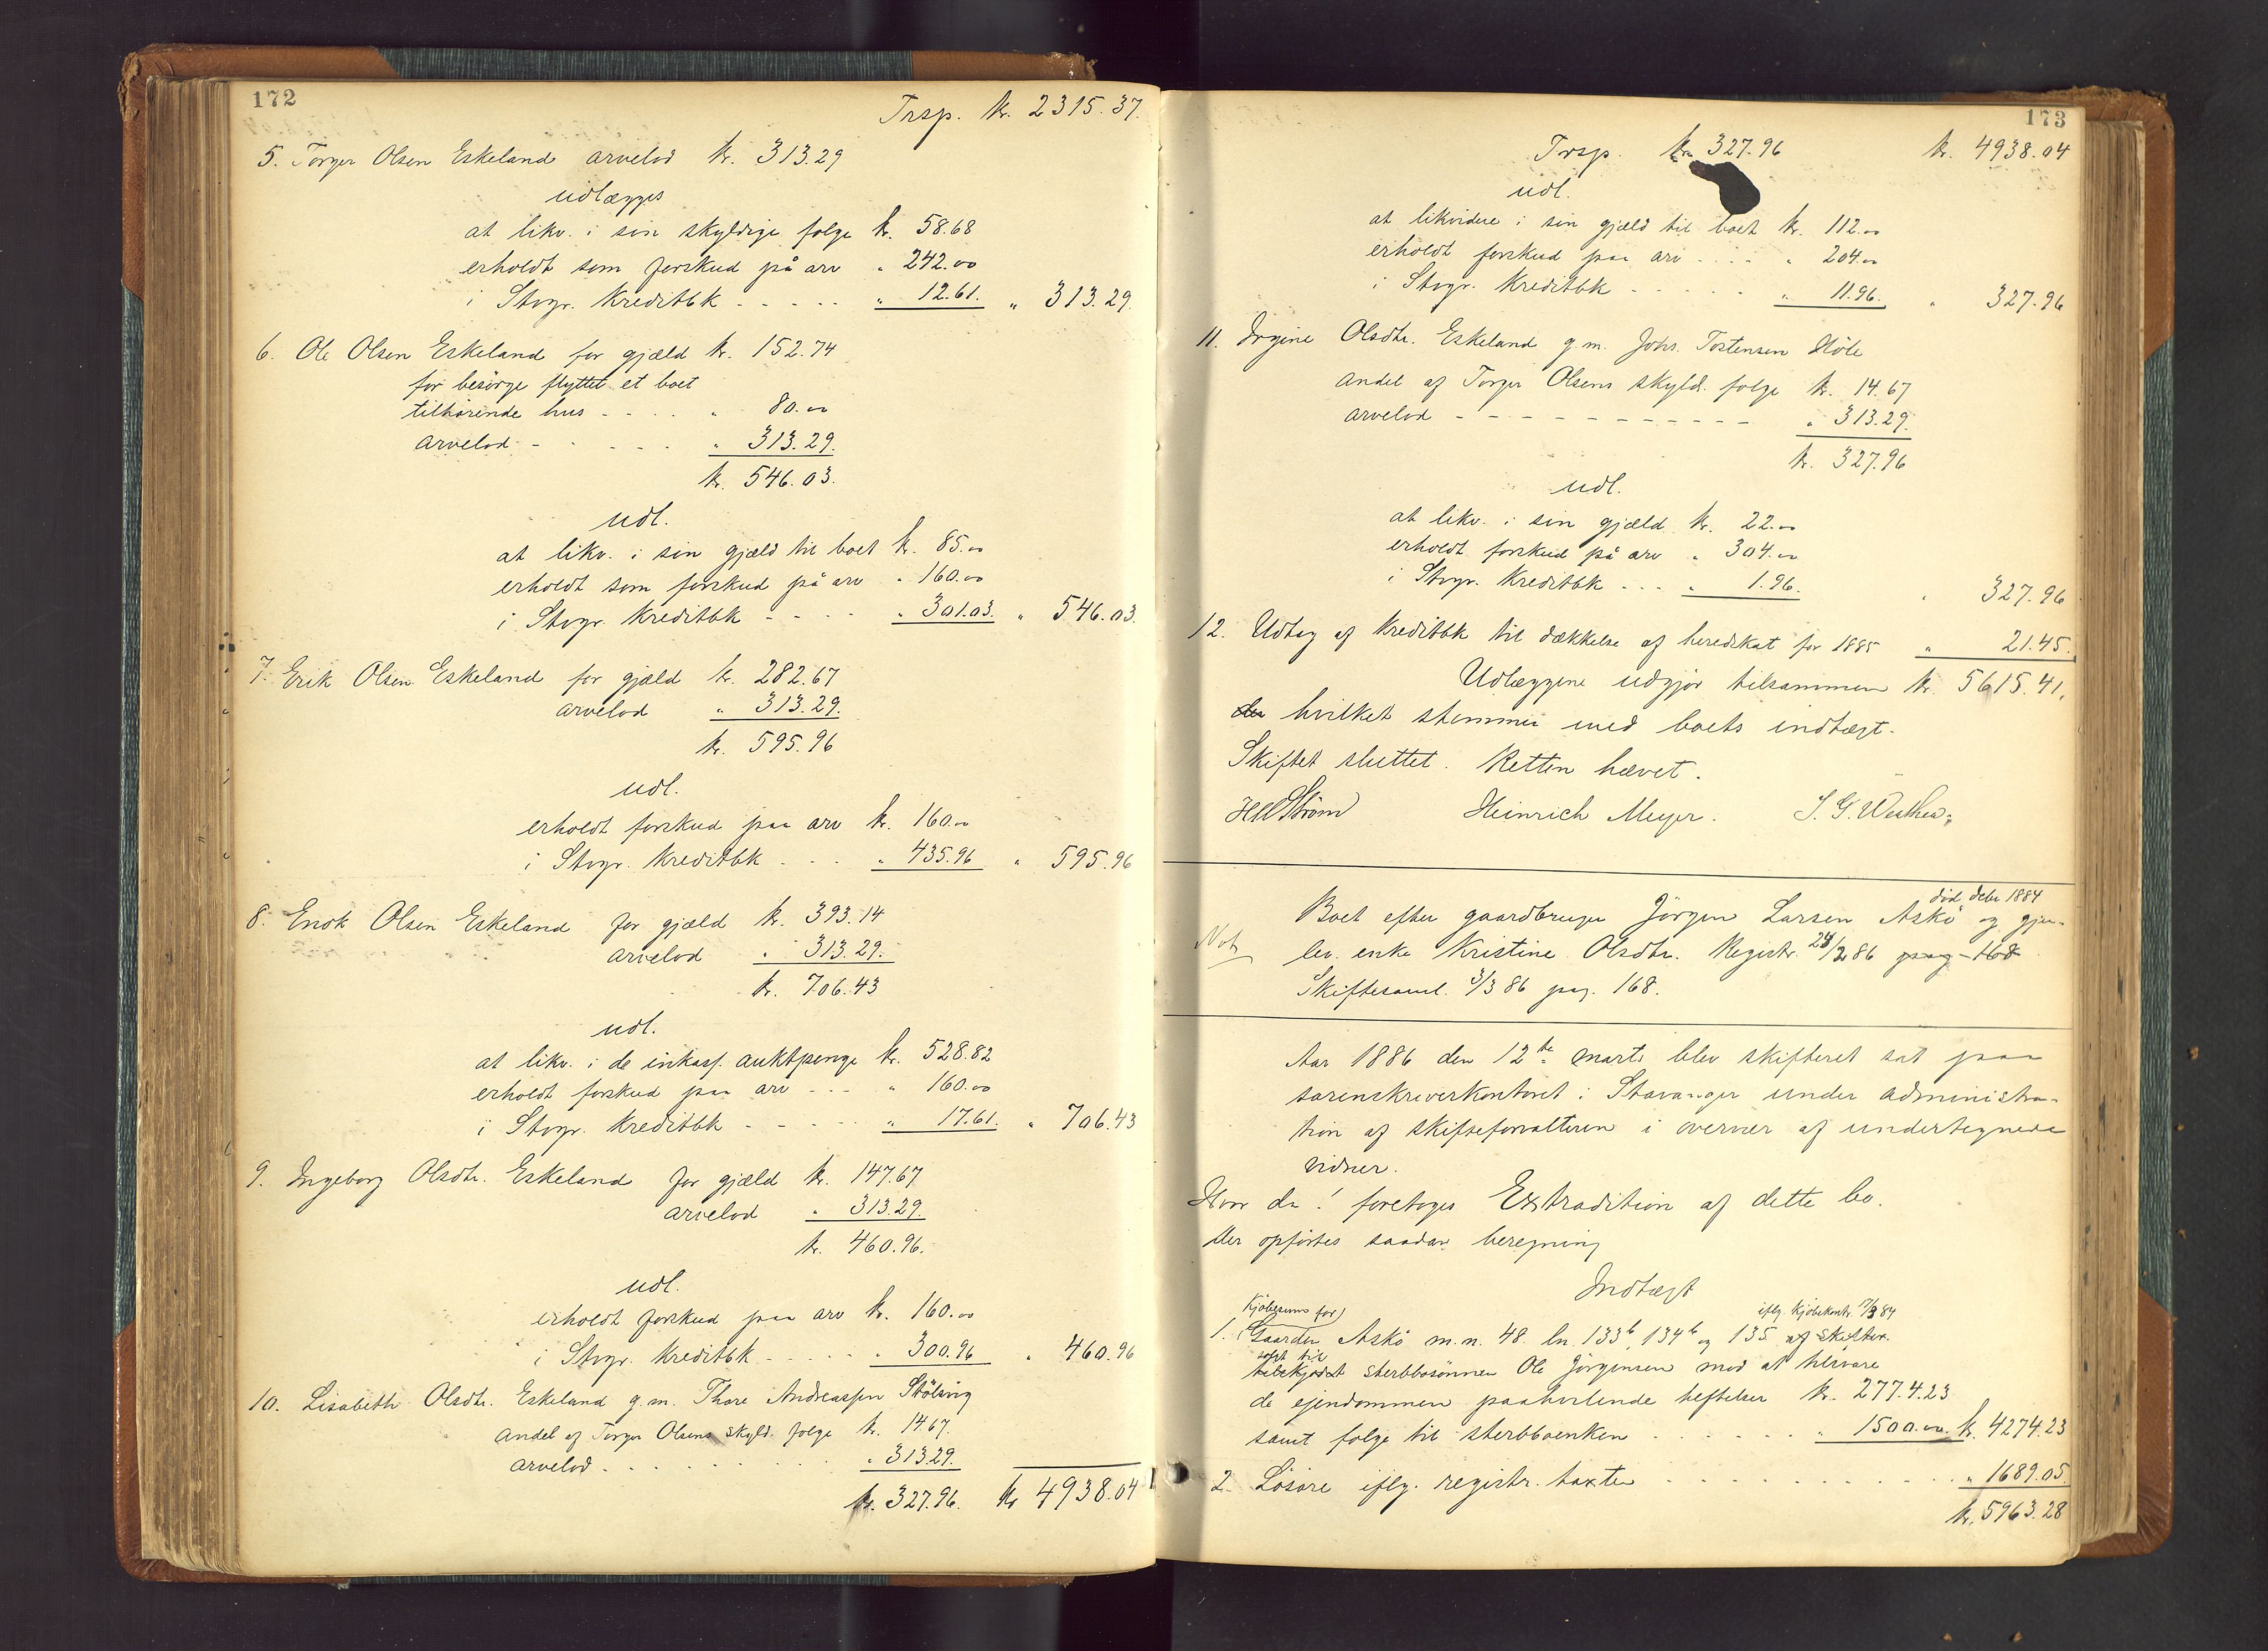 172
Trsp. kr. 2315.37.
5. Torger Olsen Eskeland arvelod kr. 313.29
udlægges
at likv. i sin skyldige folge kr. 58.68
erholdt som forskud på arv " 242.00
i Stvgr. Kreditbk - - - - - " 12.61. " 313.29.
6. Ole Olsen Eskeland for gjæld kr. 152.74
for besörge flyttet et boet
tilhørende hus - - - - " 80.00
arvelod - - - - - " 313.29.
kr. 546.03.
udl.
at likv. i sin gjæld til boet kr. 85.00
erholdt som forskud på arv " 160.00
i Stvgr. Kreditbk - - - - " 301.03. " 546.03.
7. Erik Olsen Eskeland for gjæld kr. 282.67
arvelod " 313.29.
kr. 595.96
udl.
erholdt forskud paa arv kr. 160.00
i Stvgr. Kreditbk - - - " 435.96 " 595.96
8. Enok Olsen Eskeland for gjæld kr. 393.14
arvelod " 313.29.
kr. 706.43
udl.
at likv. i de inkass. auktpenge kr. 528.82
erholdt forskud paa arv - - - " 160.00
i Stvgr. Kreditbk - - - - - " 17.61. " 706.43
9. Ingeborg Olsdtr. Eskeland for gjæld kr. 147.67
arvelod " 313.29.
kr. 460.96.
udl.
erholdt forskud paa arv kr. 160.00
i Stvgr. Kreditbk - - - - - " 300.96 " 460.96
10. Lisabeth Olsdtr. Eskeland g.m. Thore Andreassen Stölsvig
andel af Torger Olsens skyld. folge kr. 14.67.
arvelod - - - - - - - " 313.29.
kr. 327.96. kr 4938.04
173
Trsp. kr. 327.96 kr. 4938.04
udl.
at likvidere i sin gjæld til boet kr. 112.00
erholdt forskud paa arv - - - - " 204.00
i Stvgr. Kreditbk - - - - - " 11.96. " 327.96
11. Jrgine Olsdtr. Eskeland g.m. Johs. Tostensen Høle
andel af Torger Olsens skyld. folge kr. 14.67
arvelod - - - - - - - - - - - " 313.29.
kr. 327.96
udl.
at likv. i sin gjæld kr. 22.00
erholdt forskud på arv " 304.00
i Stvgr. Kreditbk - - - " 1.96. " 327.96
12. Udtag af Kreditbk til dækkelse af heredskat for 1885 " 21.45.
Udlæggene udgjør tilsammen kr. 5615.41,
hvilket stemmer med boets indtægt.
Skiftet sluttet. Retten hævet.
HWStrøm Heinrich Meyer.
død debr 1884
Boet efter gaardbruger Jörgen Larsen Askö og gjen-
Not.
lev. enke Kristine Olsdtr. Registr. 24/2 86 pag 168
Skiftesaml. 3/3 86 pag. 168.
Aar 1886 den 12te marts blev skifteret sat paa
sorenskriverkontoret i Stavanger under administra-
tion af skifteforvalteren i overvær af undertegnede
vidner.
Hvor da! foretoges Extradition af dette bo.
Der opførtes saadan beregning
Indtægt
Kjøbesum for iflg. Kjøbekontr. 17/3 84
1. Gaarden Askö m.n. 48. ln 133b, 134b og 135 af Skifter.
solgt til
tilskjødet sterbbosønnen Ole Jörgensen mod at tilsvare
de ejendommen paahvilende heftelser kr. 277.4.23
samt folge til sterbboenken - - - - - - " 1500.00. kr. 4274.23
2. Løsøre iflg. registr. taxter - - - - - - - - - - " 1689.05
kr. 5963.28